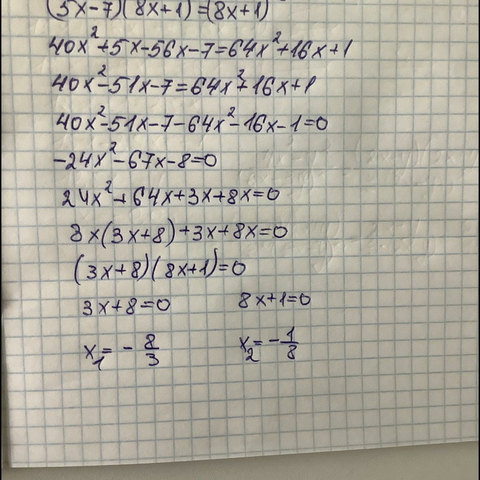 (5x-7)(8x+1)=(8x+1)
40x²+5x-56x-7=64x²+16x+1
40x²-51x-7=64x²+16x+1
40x²-51x-7-64x²-16x-1=0
-24x²-67x-8=0
24x²+64x+3x+8x=0
8x(3x+8)+3x+8x=0
(3x+8)(8x+1)=0
3x+8=0 8x+1=0
x₁=-8/3 x₂=-1/8